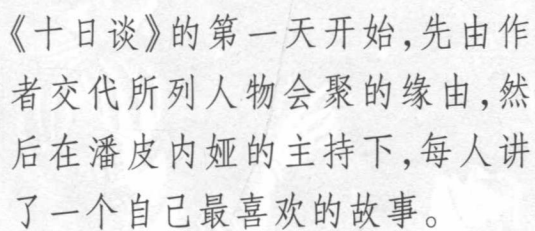 《十日谈》的第一天开始,先由作
者交代所列人物会聚的缘由,然
后在潘皮内娅的主持下,每人讲
了一个自己最喜欢的故事。